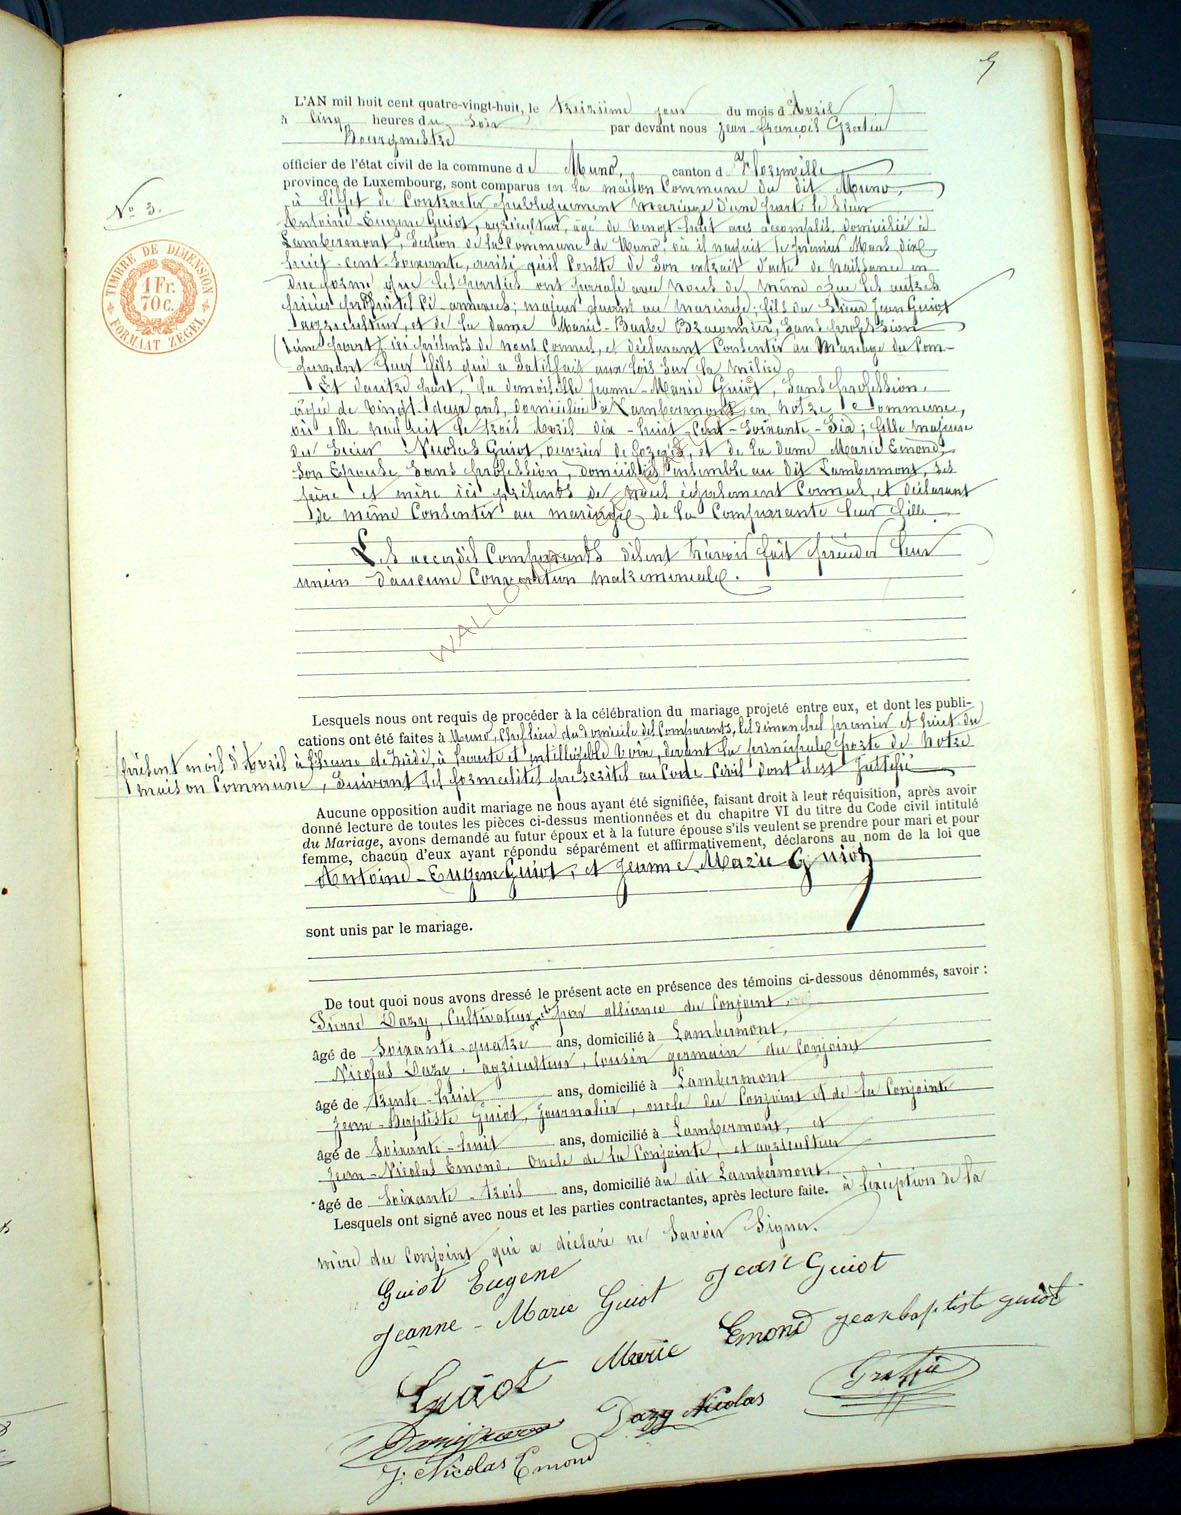 5
L'AN mil huit cent quatre-vingt-huit, le treizième jour du mois d'Avril
à cinq heures du soir par devant nous Jean-françois Gratia
Bourgmestre
officier de l'état civil de la commune de Muno, canton de Florenville
province de Luxembourg, sont comparus en la maison Commune du dit Muno,
N° 3.
à l'effet de Contracter publiquement mariage d'une part, le sieur
Antoine-Eugène Guiot, agriculteur, âgé de vingt huit ans accomplis, domicilié à
Lambermont, Section de la Commune de Muno où il naquit le premier Mars dix
huit-cent-soixante, ainsi qu'il Conste de son extrait d'acte de Naissance en
due forme que les parties ont parafé avec nous de même que les autres
pièces ci-annexées; majeur quant au mariage; fils du Sieur Jean Guiot
agriculteur, et de la dame Marie-Barbe Braconnier, sans profession
d'une part, ici présents de nous Connus, et déclarant Consentir au Mariage du Com-
parant leur fils qui a Satisfait aux lois sur la milice
Et d'autre part, la demoiselle Jeanne-Marie Guiot, sans profession,
âgée de vingt-deux ans, domiciliée à Lambermont, en notre Commune,
où elle naquit le trois Avril dix-huit-Cent-soixante-Six; fille majeure
du Sieur Nicolas Guiot, ouvrier de forges, et de la dame Marie Emond,
son Epouse sans profession, domiciliés ensemble au dit Lambermont, ses
père et mère ici présents de nous également Connus, et déclarant
de même Consentir au mariage de la Comparante leur fille.
Les accordés Comparants disent n'avoir fait précéder leur
union d'aucune Convention matrimoniale.
WALLONIA
TIMBRE DE DIMENSION
1 Fr.
70 C.
FORMAAT ZEGEL
Lesquels nous ont requis de procéder à la célébration du mariage projeté entre eux, et dont les publi-
cations ont été faites à Muno, Chef lieu du domicile des Comparants, les dimanches premier et huit du
présent mois d'Avril à l'heure de midi, à haute et intelligible voix, devant la principale porte de Notre
maison Commune, suivant les formalités prescrites au Code Civil dont il est Justifié
Aucune opposition audit mariage ne nous ayant été signifiée, faisant droit à leur réquisition, après avoir
donné lecture de toutes les pièces ci-dessus mentionnées et du chapitre VI du titre du Code civil intitulé
du Mariage, avons demandé au futur époux et à la future épouse s'ils veulent se prendre pour mari et pour
femme, chacun d'eux ayant répondu séparément et affirmativement, déclarons au nom de la loi que
Antoine-Eugène Guiot, et Jeanne-Marie Guiot
sont unis par le mariage.
De tout quoi nous avons dressé le présent acte en présence des témoins ci-dessous dénommés, savoir :
Pierre Dazy, Cultivateur, oncle par alliance du Conjoint,
âgé de Soixante-quatre ans, domicilié à Lambermont,
Nicolas Dazy, agriculteur, Cousin germain du Conjoint
âgé de trente-huit ans, domicilié à Lambermont
Jean-Baptiste Guiot, Journalier, oncle du Conjoint et de la Conjointe
âgé de Soixante-huit ans, domicilié à Lambermont, et
Jean-Nicolas Emond, Oncle de la Conjointe, et agriculteur
âgé de Soixante-trois ans, domicilié au dit Lambermont.
Lesquels ont signé avec nous et les parties contractantes, après lecture faite. à l'exception de la
mère du Conjoint qui a déclaré ne Savoir Signer.
Guiot Eugene
Jeanne-Marie Guiot Jean Guiot
Guiot Marie Emond Jeanbaptiste guiot
Dazy Nicolas
J. Nicolas Emond